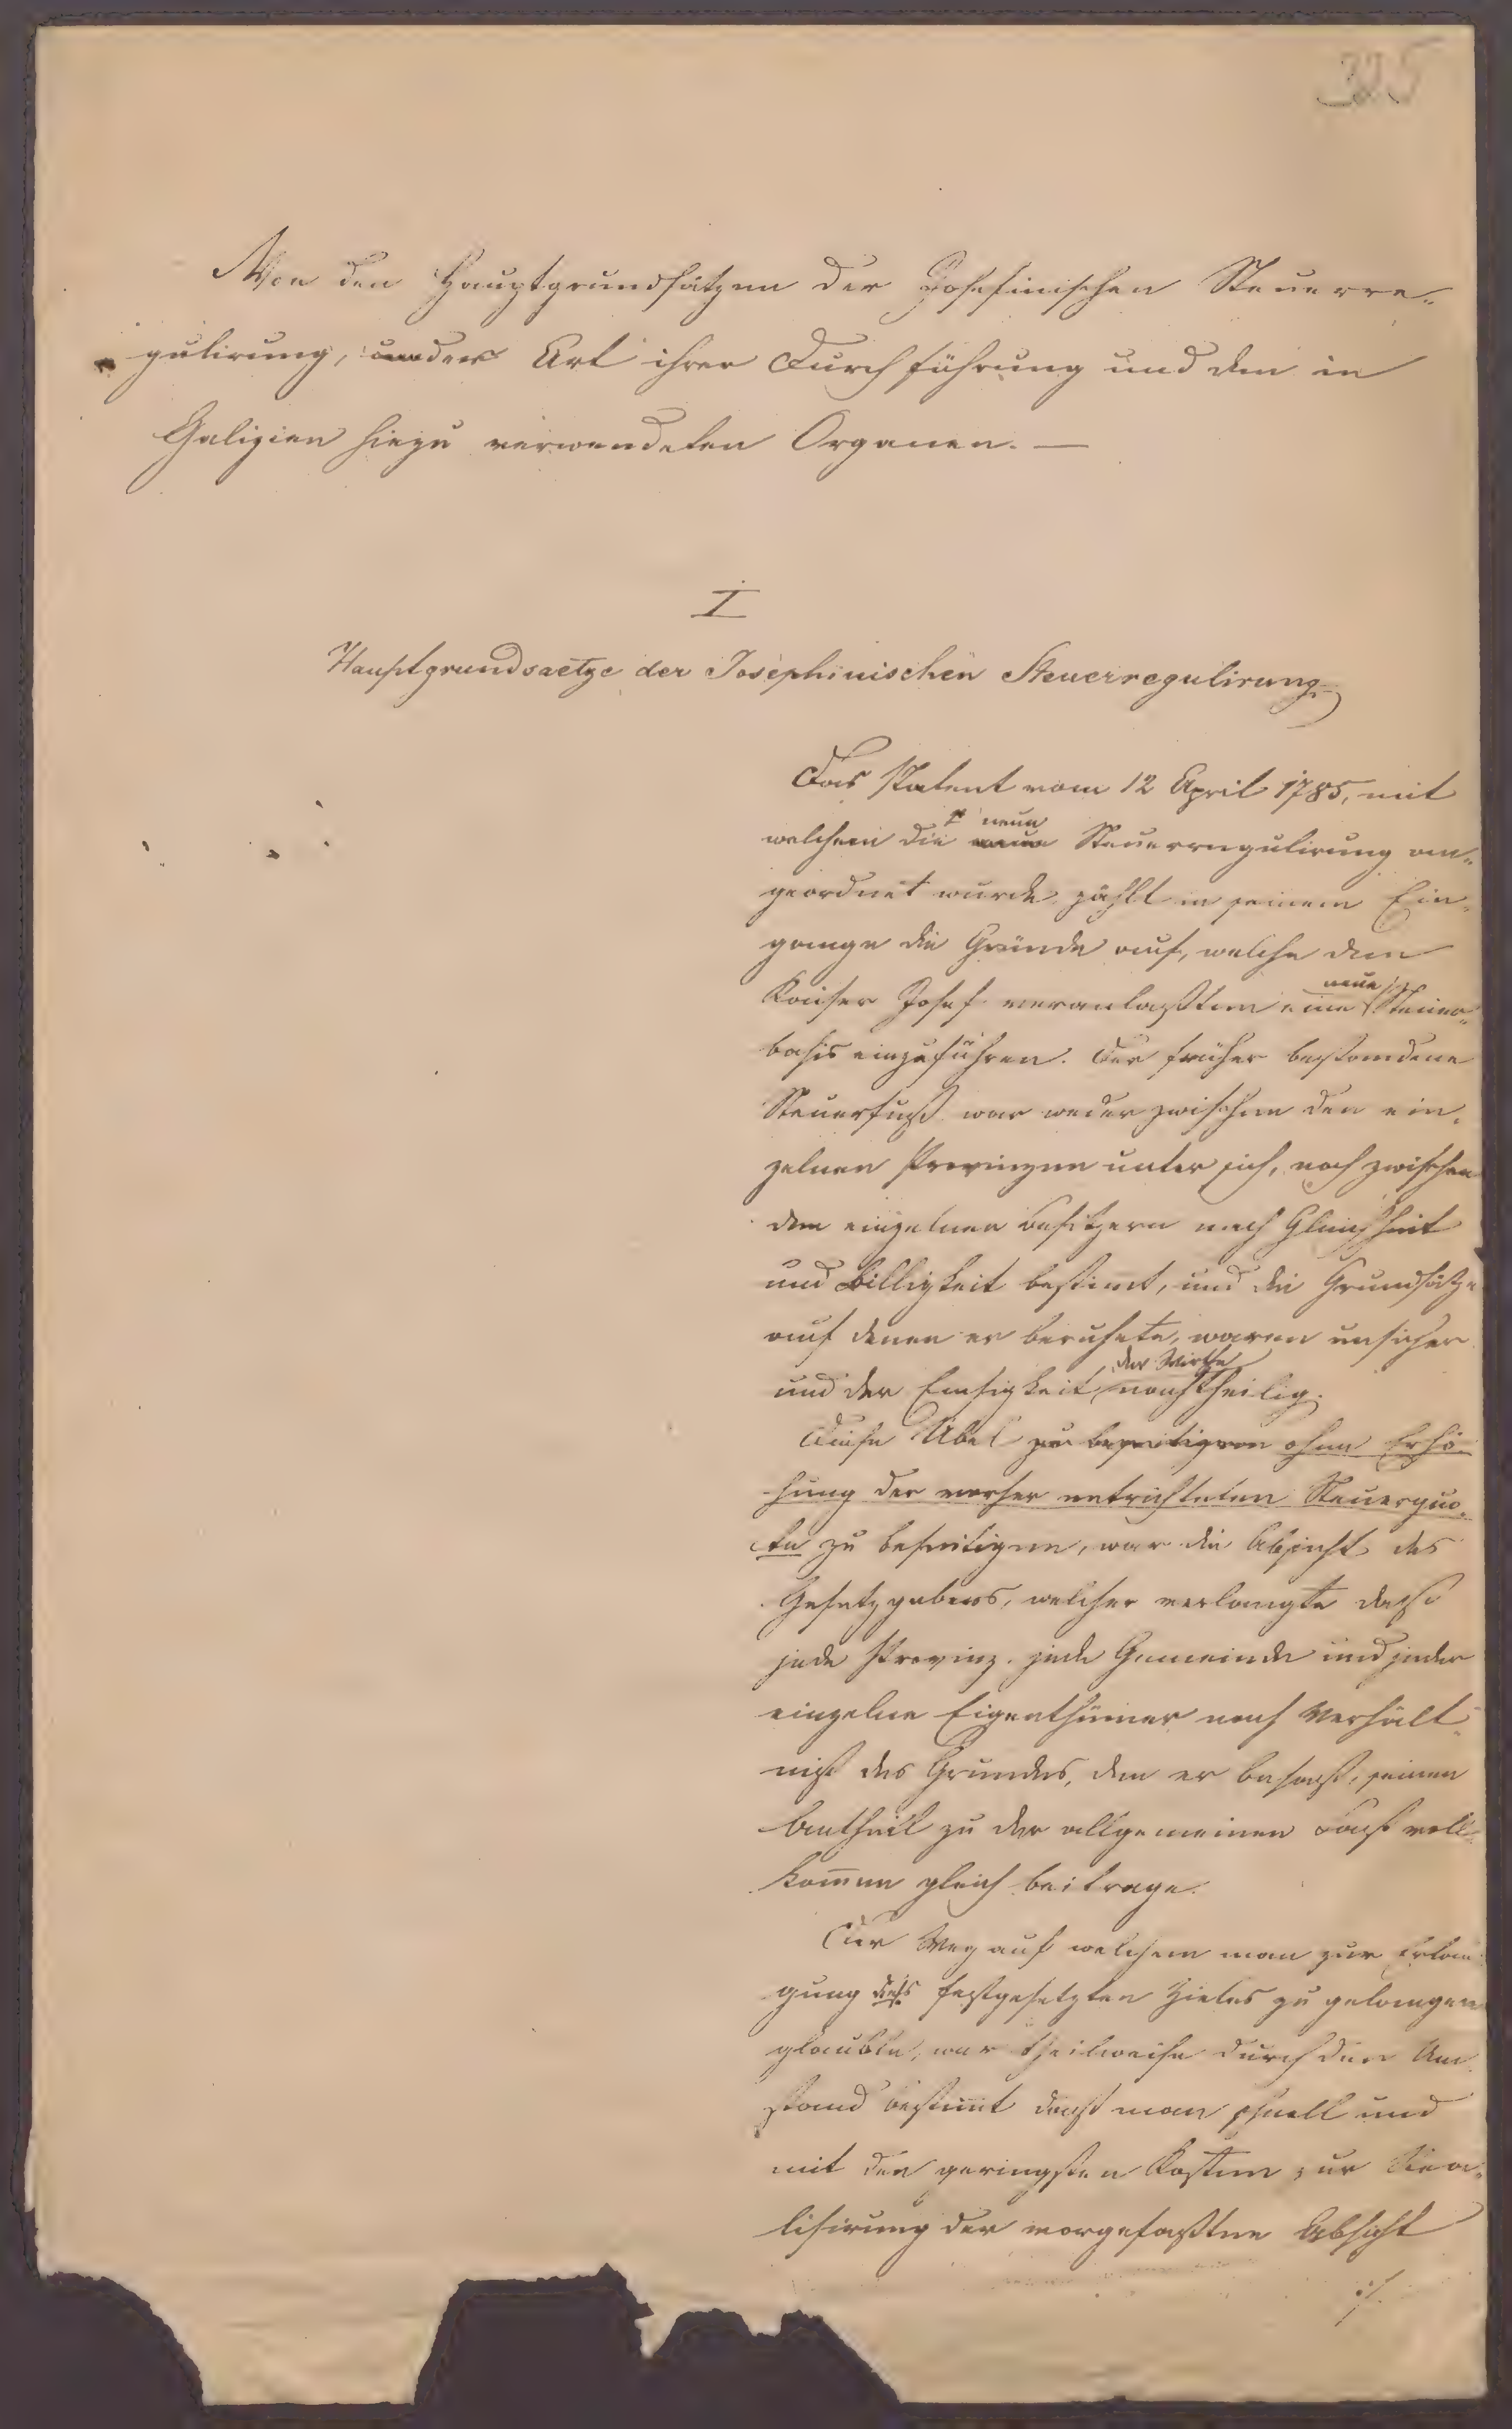 325
Von den Hauptgrundsätzen der Josefinischen Steuerre-
gulirung, der Art ihrer Durchführung und den in
Galizien hiezu verwendeten Organen. —
I
Hauptgrundsaetze der Josephinischen Steuerregulirung.
Das Patent vom 12 April 1785, mit
neue
welchem die neue Steuerregulirung an-
geordnet wurde, zählt in seinem Ein-
gange die Gründe auf, welche den
neue
Kaiser Josef veranlaßten eine Steuer-
basis einzuführen. Der früher bestandene
Steuerfuß war weder zwischen den ein-
zelnen Provinzen unter sich, noch zwischen
den einzelnen Besitzern nach Gleichheit
und Billigkeit bestimt, und die Grundsätze
auf denen er beruhete, waren unsicher
der Wirthe
und der Emsigkeit nachtheilig.
Diese Übel zu beseitigen ohne Erhö-
hung der vorher entrichteten Steuerquo-
te zu beseitigen, war die Absicht des
Gesetzgebers, welcher verlangte daß
jede Provinz, jede Gemeinde und jeder
einzelne Eigenthümer nach Verhält-
niß des Grundes, den er besaß, seinen
Antheil zu der allgemeinen Last voll-
kommen gleich beitrage.
Der Weg auf welchem man zur Erlan-
gung dieses festgesetzten Zieles zu gelangen
glaubte, war theilweise durch den Um-
stand bestimt daß man schnell und
mit den geringsten Kosten zur Rea-
lisirung der vorgefaßten Absicht
./.